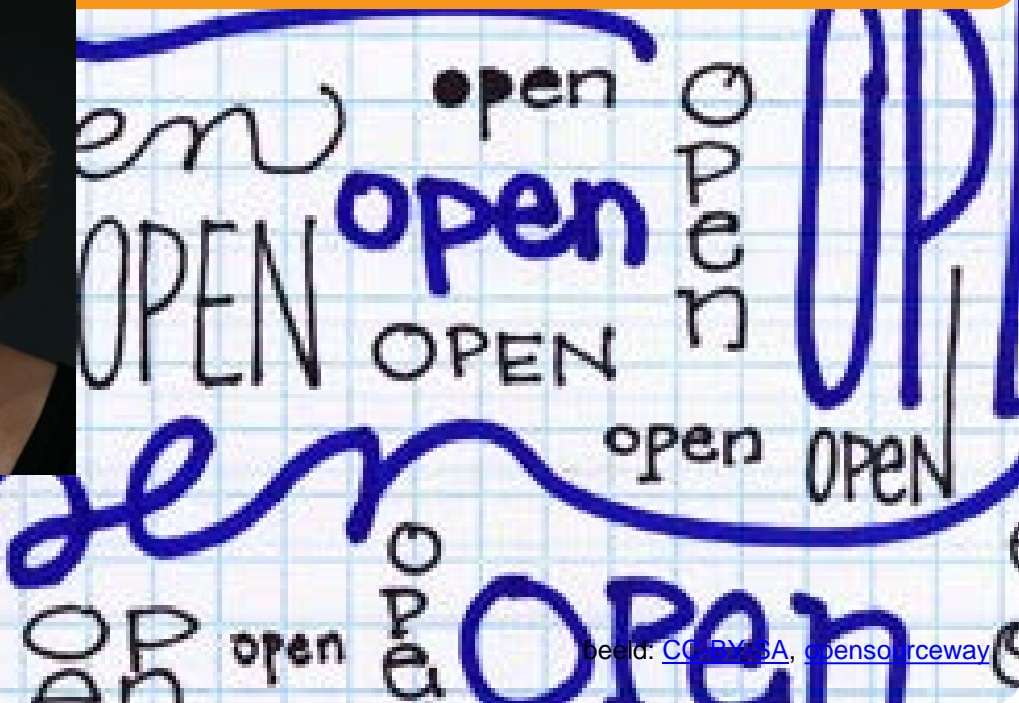 open
open
en
OPEN
open
OPEN
OP
open
OPEN
en
ope
OP
en
open
open
beeld: CC-BY-SA, opensourceway